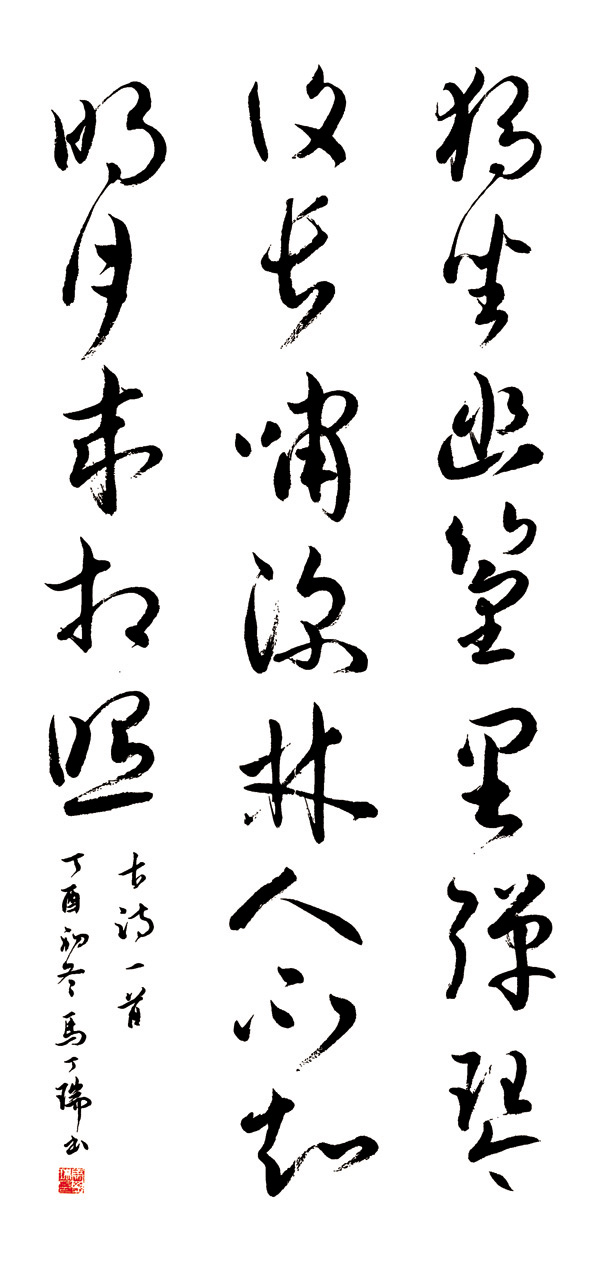 獨坐幽篁里彈琴
復長嘯深林人不知
明月來相照
古詩一首
丁酉初冬馬丁瑞書